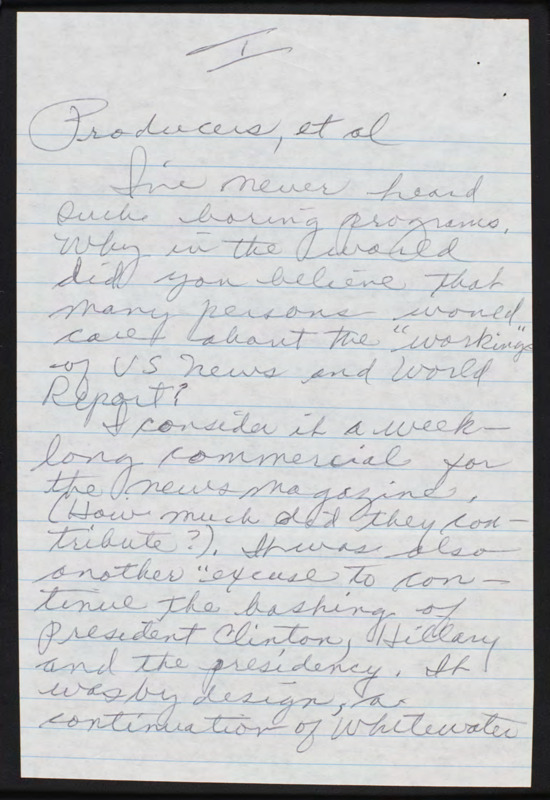 I
Producers, et al
I've never heard
such boring programs.
Why in the world
did you believe that
many persons would
care about the "workings
of US News and World
Report?
I consider it a week-
long commercial for
the newsmagazine.
(How much did they con-
tribute?). It was also
another "excuse to con-
tinue the bashing of
President Clinton, Hillary
and the presidency. It
was by design, a
continuation of Whitewater